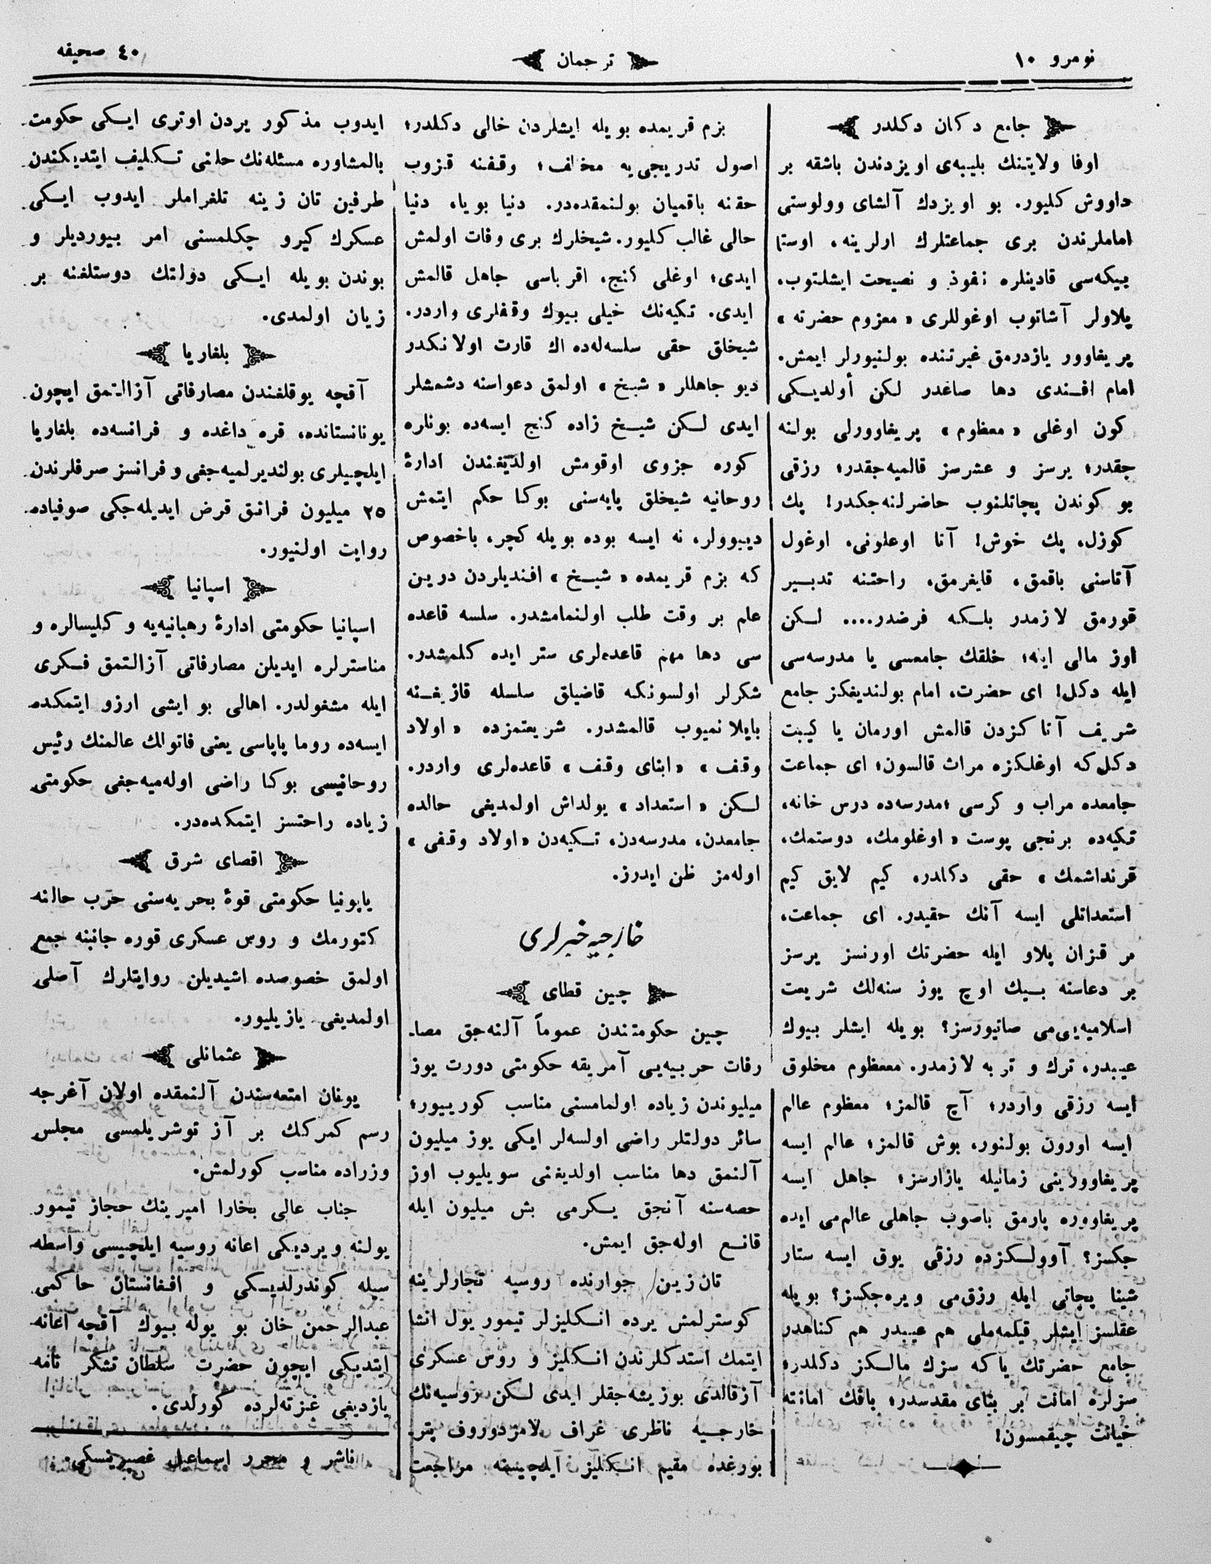 نومرو ١٠
ترجمان
٤٠ صحيفه
جامع دكان دكلدر
اوفا ولايتنك بليبه‌ى اويزدندن باشقه بر
داووش كليور. بو اويزدك آلشاى وولوستى
اماملرندن برى جماعتلرك اولرينه، اوستا
بيكه‌سى قادينلره نفوذ و نصيحت ايشلتوب،
پلاولر آشاتوب اوغوللرى « معزوم حضرته »
پريغاوور يازدرمق غيرتنده بولنيورلر ايمش.
امام افندى دها صاغدر لكن أولديكى
كون اوغلى « معظوم » پريغاوورلى بولنه
جقدر؛ يرسز و عشرسز قالميه‌جقدر؛ رزقى
بو كوندن پچاتلنوب حاضرلنه‌جكدر! پك
كوزل، پك خوش! آنا اوغلونى، اوغول
آتاسنى باقمق، قايغرمق، راحتنه تدبير
قورمق لازمدر بلكه فرضدر.... لكن
اوز مالى ايله؛ خلقك جامعسى يا مدرسه‌سى
ايله دكل! اى حضرت، امام بولنديغكز جامع
شريف آتا كزدن قالمش اورمان يا كيبت
دكل‌كه اوغلكزه مراث قالسون؛ اى جماعت
جامعده مراب و كرسى ؛مدرسه‌ده درس خانه،
تكيه‌ده برنجى پوست « اوغلومك، دوستمك،
قرنداشمك » حقى دكلدر، كيم لايق كيم
استعداتلى ايسه آنك حقيدر. اى جماعت،
بر قزان پلاو ايله حضرتك اورنسز يرسز
بر دعاسنه بيك اوچ يوز سنه‌لك شريعت
اسلاميه‌يى‌مى صاتيورسز؟ بويله ايشلر بيوك
عيبدر، ترك و توبه لازمدر. معظوم مخلوق
ايسه رزقى واردر؛ آچ قالمز؛ معظوم عالم
ايسه اورون بولنور، بوش قالمز؛ عالم ايسه
پريغاوورينى زمانيله يازارسز؛ جاهل ايسه
پريغاووره پارمق باصوب جاهلى عالم‌مى ايده
جكسز؟ آوولكزده رزقى يوق ايسه ستار
شينا پچاتى ايله رزق‌مى ويره‌جكسز؟ بويله
عقلسز ايشلر قيلمه‌ملى هم عيبدر هم كناهدر
جامع حضرتك ياكه سزك مالكز دكلدر؛
سزلره امانت بر بناى مقدسدر؛ باقك امانته
خيانت چيقمسون!
بزم قريمده بويله ايشلردن خالى دكلدر؛
اصول تدريجى‌يه مخالف؛ وقفنه قزوب
حقنه باقميان بولنمقده‌در. دنيا بويا، دنيا
حالى غالب كليور. شيخلرك برى وفات اولمش
ايدى؛ اوغلى كنج، اقرباسى جاهل قالمش
ايدى. تكيه‌نك خيلى بيوك وقفلرى واردر.
شيخلق حقى سلسه‌له‌ده اك قارت اولانكدر
ديو جاهللر « شيخ » اولمق دعواسنه دشمشلر
ايدى لكن شيخ زاده كنج ايسه‌ده بونلره
كوره جزوى اوقومش اولديغندن ادارۀ
روحانيه شيخلق پايه‌سنى بوكا حكم ايتمش
ديبوولر، نه ايسه بوده بويله كچر، باخصوص
كه بزم قريمده « شيخ » افنديلردن درين
علم بر وقت طلب اولنمامشدر. سلسه قاعده
سى دها مهم قاعده‌لرى ستر ايده كلمشدر.
شكرلر اولسونكه قاضيلق سلسله قازيغنه
بايلانميوب قالمشدر. شريعتمزده « اولاد
وقف » « ابناى وقف » قاعده‌لرى واردر.
لكن « استعداد » يولداش اولمديغى حالده
جامعدن، مدرسه‌دن، تكيه‌دن « اولاد وقفى »
اوله‌مز ظن ايدرز.
خارجيه خبرلرى
چين قطاى
چين حكومتندن عموماً آلنه‌جق مصا‌
رفات حربيه‌يى آمريقه حكومتى دورت يوز
ميليوندن زياده اولمامسنى مناسب كورييور؛
سائر دولتلر راضى اولسه‌لر ايكى يوز ميليون
آلنمق دها مناسب اولديغنى سويليوب اوز
حصه‌سنه آنجق يكرمى بش ميليون ايله
قانع اوله‌جق ايمش.
تان زين جوارنده روسيه تجارلرينه
كوسترلمش يرده انكليزلر تيمور يول انشا
ايتمك استدكلرندن انكليز و روس عسكرى
آزقالدى بوزيشه‌جقلر ايدى لكن روسيه‌نك
خارجيه ناظرى غراف لامزدوروف پتر
بورغده مقيم انكليز ايلچيسنه مراجعت
ايدوب مذكور يردن اوترى ايكى حكومت
بالمشاوره مسئله‌نك حلنى تكليف ايتديكندن
طرفين تان زينه تلغراملر ايدوب ايكى
عسكرك كيرو چكلمسنى امر بيورديلر و
بوندن بويله ايكى دولتك دوستلغنه بر
زيان اولمدى.
بلغاريا
آقچه يوقلغندن مصارفاتى آزالتمق ايچون
يونانستانده، قره داغده و فرانسه‌ده بلغاريا
ايلچيلرى بولنديرلميه‌جغى و فرانسز صرفلرندن
٢٥ ميليون فرانق قرض ايديله‌جكى صوفياده
روايت اولنيور.
اسپانيا
اسپانيا حكومتى ادارۀ رهبانيه‌يه و كليسالره و
مناسترلره ايديلن مصارفاتى آزالتمق فكرى
ايله مشغولدر. اهالى بو ايشى ارزو ايتمكده
ايسه‌ده روما پاپاسى يعنى قاتولك عالمنك رئيس
روحانيسى بوكا راضى اوله‌ميه‌جغى حكومتى
زياده راحتسز ايتمكده‌در.
اقصاى شرق
ياپونيا حكومتى قوۀ بحريه‌سنى حرب حالنه
كتورمك و روس عسكرى قوره جانبنه جمع
اولمق خصوصده اشيديلن روايتلرك آصلى
اولمديغى يازيليور.
عثمانلى
يونان امتعه‌سندن آلنمقده اولان آغرجه
رسم كمركك بر آز توشريلمسى مجلس
وزراده مناسب كورلمش.
جناب عالى بخارا اميرينك حجاز تيمور
يولنه ويرديكى اعانه روسيه ايلچيسى واسطه
سيله كوندرلديكى و افغانستان حاكمى
عبدالرحمن خان بو يوله بيوك آقچه اعانه
ايتديكى ايچون حضرت سلطان تشكر نامه
يازديغى غزته‌لرده كورلدى.
ناشر و محرر اسماعيل غصپرينسكى.